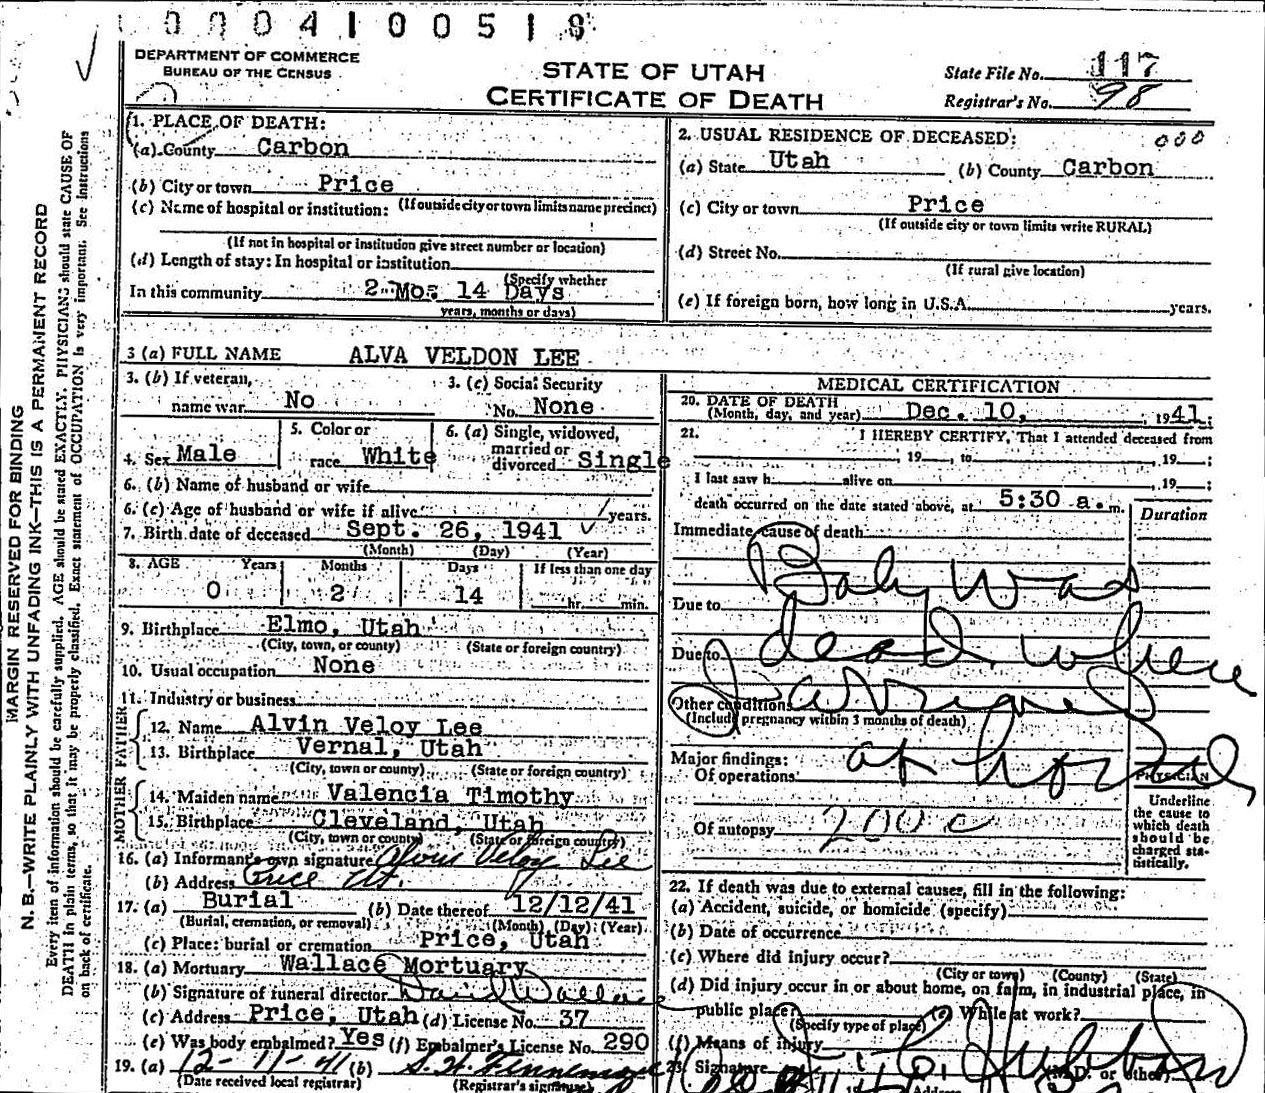 0004100518
DEPARTMENT OF COMMERCE
BUREAU OF THE CENSUS
STATE OF UTAH
CERTIFICATE OF DEATH
State File No. 117
Registrar's No. 98
MARGIN RESERVED FOR BINDING
N. B.—WRITE PLAINLY WITH UNFADING INK—THIS IS A PERMANENT RECORD
Every item of information should be carefully supplied. AGE should be stated EXACTLY. PHYSICIANS should state CAUSE OF
DEATH in plain terms, so that it may be properly classified. Exact statement of OCCUPATION is very important. See instructions
on back of certificate.
1. PLACE OF DEATH:
(a) County Carbon
(b) City or town Price
(c) Name of hospital or institution: (If outside city or town limits name precinct)
(If not in hospital or institution give street number or location)
(d) Length of stay: In hospital or institution
(Specify whether
In this community 2 Mo. 14 Days
years, months or days)
2. USUAL RESIDENCE OF DECEASED: 000
(a) State Utah (b) County Carbon
(c) City or town Price
(If outside city or town limits write RURAL)
(d) Street No.
(If rural give location)
(e) If foreign born, how long in U.S.A. years.
3 (a) FULL NAME ALVA VELDON LEE
3. (b) If veteran, name war No
3. (c) Social Security No. None
4. Sex Male
5. Color or race White
6. (a) Single, widowed, married or divorced Single
6. (b) Name of husband or wife
6. (c) Age of husband or wife if alive years.
7. Birth date of deceased Sept. 26, 1941
(Month) (Day) (Year)
8. AGE Years Months Days If less than one day
0 2 14 hr. min.
9. Birthplace Elmo, Utah
(City, town, or county) (State or foreign country)
10. Usual occupation None
11. Industry or business
FATHER
12. Name Alvin Veloy Lee
13. Birthplace Vernal, Utah
(City, town or county) (State or foreign country)
MOTHER
14. Maiden name Valencia Timothy
15. Birthplace Cleveland, Utah
(City, town or county) (State or foreign country)
16. (a) Informant's own signature Alvin Veloy Lee
(b) Address Price Ut.
17. (a) Burial (b) Date thereof 12/12/41
(Burial, cremation, or removal) (Month) (Day) (Year)
(c) Place: burial or cremation Price, Utah
18. (a) Mortuary Wallace Mortuary
(b) Signature of funeral director David Wallace
(c) Address Price, Utah (d) License No. 37
(e) Was body embalmed? Yes (f) Embalmer's License No. 290
19. (a) 12-11-41 (b)
(Date received local registrar) (Registrar's signature)
MEDICAL CERTIFICATION
20. DATE OF DEATH
(Month, day, and year) Dec. 10, 1941;
21. I HEREBY CERTIFY, That I attended deceased from
, 19 , to , 19 ;
I last saw h alive on , 19 ;
death occurred on the date stated above, at 5:30 a. m.
Duration
Immediate cause of death
Baby was
Due to
dead when
Due to
I arrived
Other conditions
(Include pregnancy within 3 months of death)
at house
Major findings:
Of operations
200 c
Of autopsy
PHYSICIAN
Underline
the cause to
which death
should be
charged sta-
tistically.
22. If death was due to external causes, fill in the following:
(a) Accident, suicide, or homicide (specify)
(b) Date of occurrence
(c) Where did injury occur?
(City or town) (County) (State)
(d) Did injury occur in or about home, on farm, in industrial place, in
public place? (e) While at work?
(Specify type of place)
(f) Means of injury
23. Signature (M.D. or other)
Address